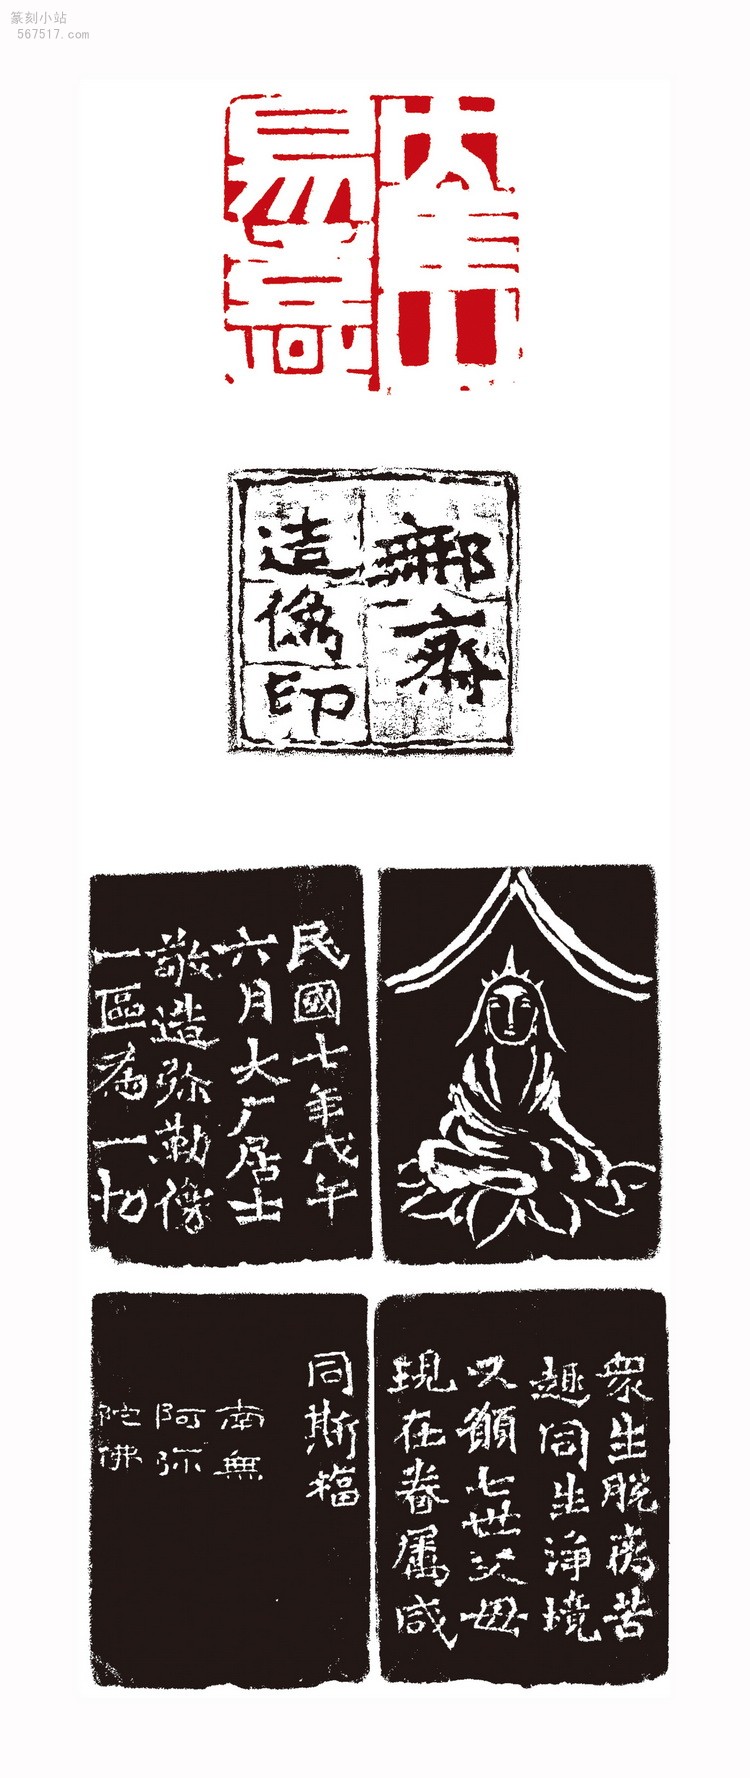 篆刻小站
567517.com
鄦齋
造像印
民國七年戊午
六月大厂居士
敬造弥勒像
一區為一切
衆生脫离苦
趣同生淨境
又願七世父母
現在眷属咸
同斯福
南無
阿弥
陀佛